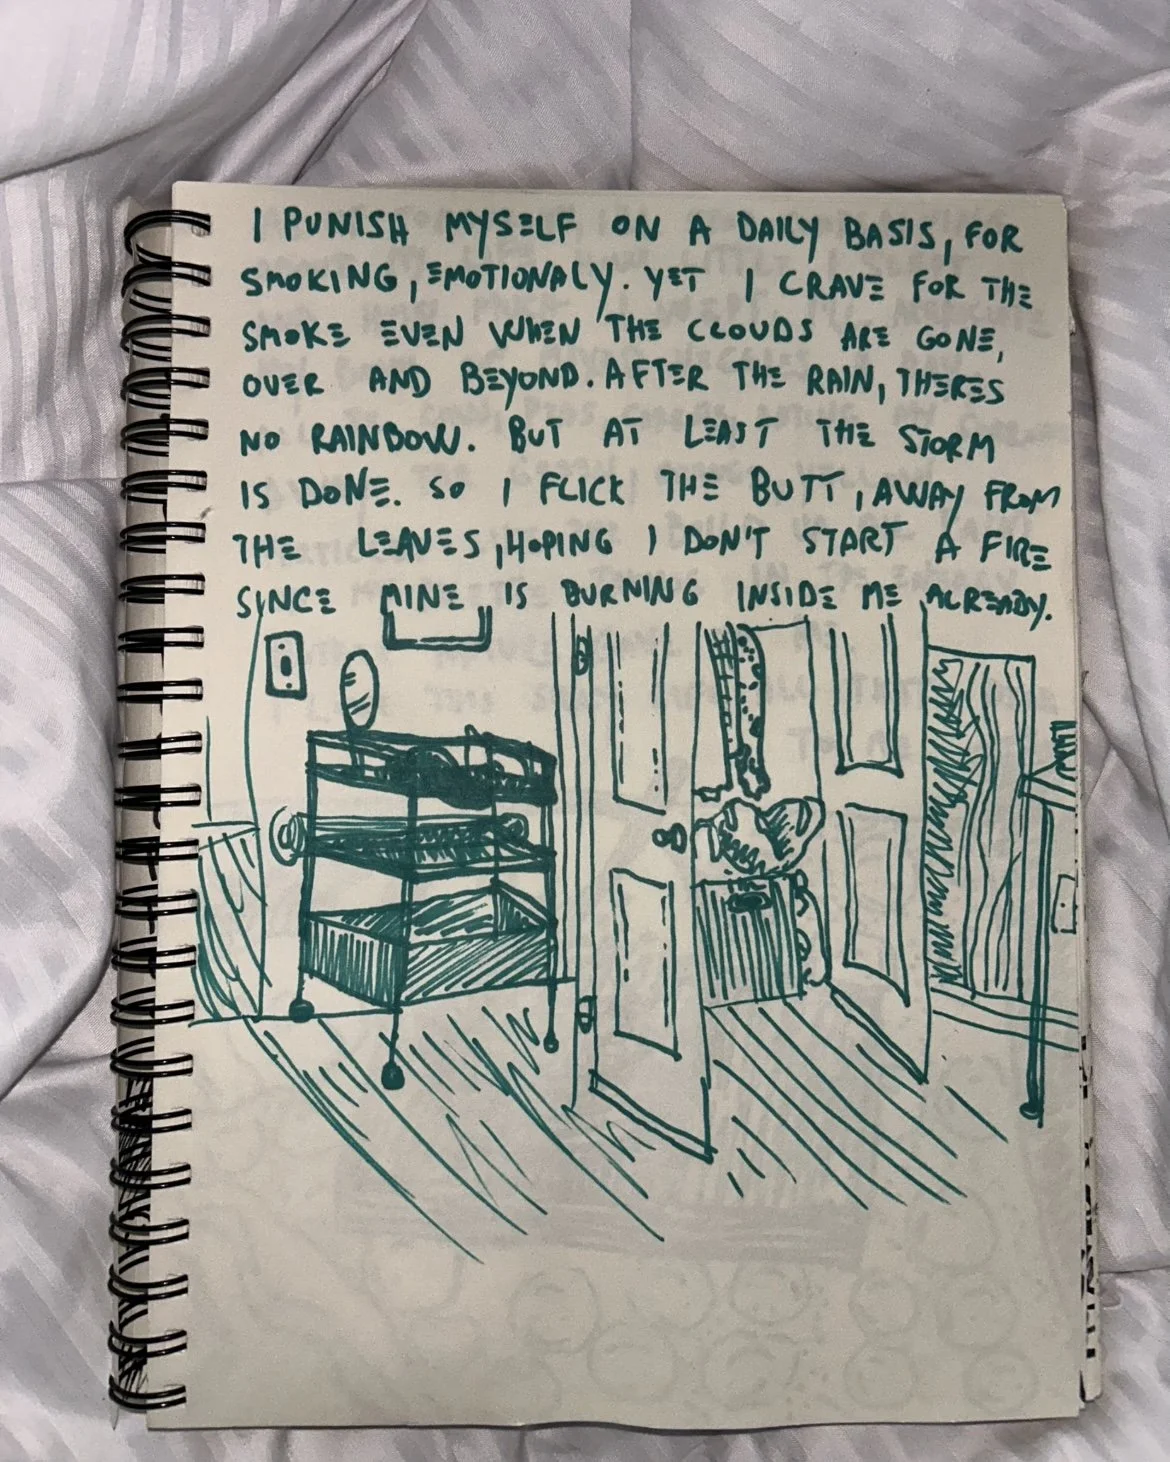 I PUNISH MYSELF ON A DAILY BASIS, FOR
SMOKING, EMOTIONALY. YET I CRAVE FOR THE
SMOKE EVEN WHEN THE CLOUDS ARE GONE,
OVER AND BEYOND. AFTER THE RAIN, THERES
NO RAINBOW. BUT AT LEAST THE STORM
IS DONE. SO I FLICK THE BUTT, AWAY FROM
THE LEAVES, HOPING I DON'T START A FIRE
SINCE MINE IS BURNING INSIDE ME ALREADY.